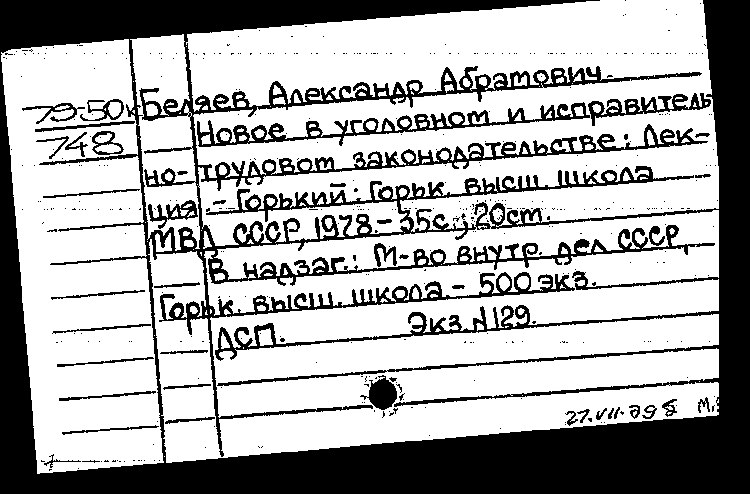 79-50к Беляев, Александр Абрамович.
748 Новое в уголовном и исправитель
но-трудовом законодательстве: Лек-
ция. - Горький: Горьк. высш. школа
МВД СССР, 1978. - 35с.; 20см.
В надзаг.: М-во внутр. дел СССР,
Горьк. высш. школа. - 500 экз.
ДСП. Экз. №129.
27.VII.79